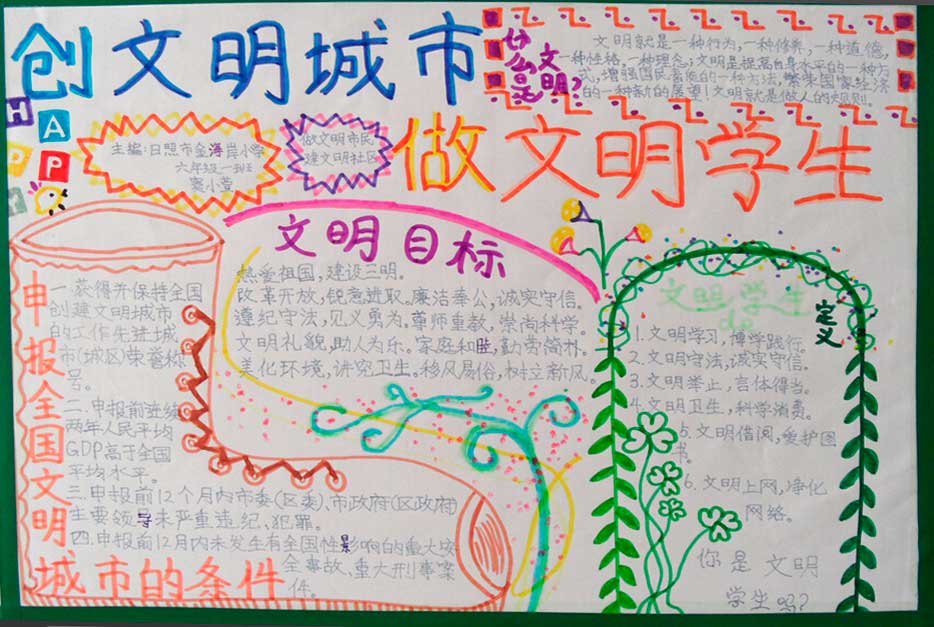 创文明城市
什么是文明?
文明就是一种行为,一种修养,一种道德,
一种性格,一种理念;文明是提高自身水平的一种方
式,增强国民素质的一种方法,繁荣国家经济
的一种新的展望!文明就是做人的规则。
HAPPY
主编:日照市金海岸小学
六年级一班
窦小萱
做文明市民
建文明社区
做文明学生
申报全国文明
城市的条件
一.获得并保持全国
创建文明城市
的工作先进城
市(城区)荣誉称
号。
二.申报前连续
两年人民平均
GDP高于全国
平均水平。
三.申报前12个月内市委(区委)、市政府(区政府)
主要领导未严重违纪、犯罪。
四.申报前12月内未发生有全国性影响的重大安
全事故、重大刑事案
件。
文明目标
热爱祖国,建设三明。
改革开放,锐意进取。廉洁奉公,诚实守信。
遵纪守法,见义勇为。尊师重教,崇尚科学。
文明礼貌,助人为乐。家庭和睦,勤劳简朴。
美化环境,讲究卫生。移风易俗,树立新风。
文明学生
de
定义
1.文明学习,博学践行。
2.文明守法,诚实守信。
3.文明举止,言体得当。
4.文明卫生,科学消费。
5.文明借阅,爱护图
书。
6.文明上网,净化
网络。
你是文明
学生吗?